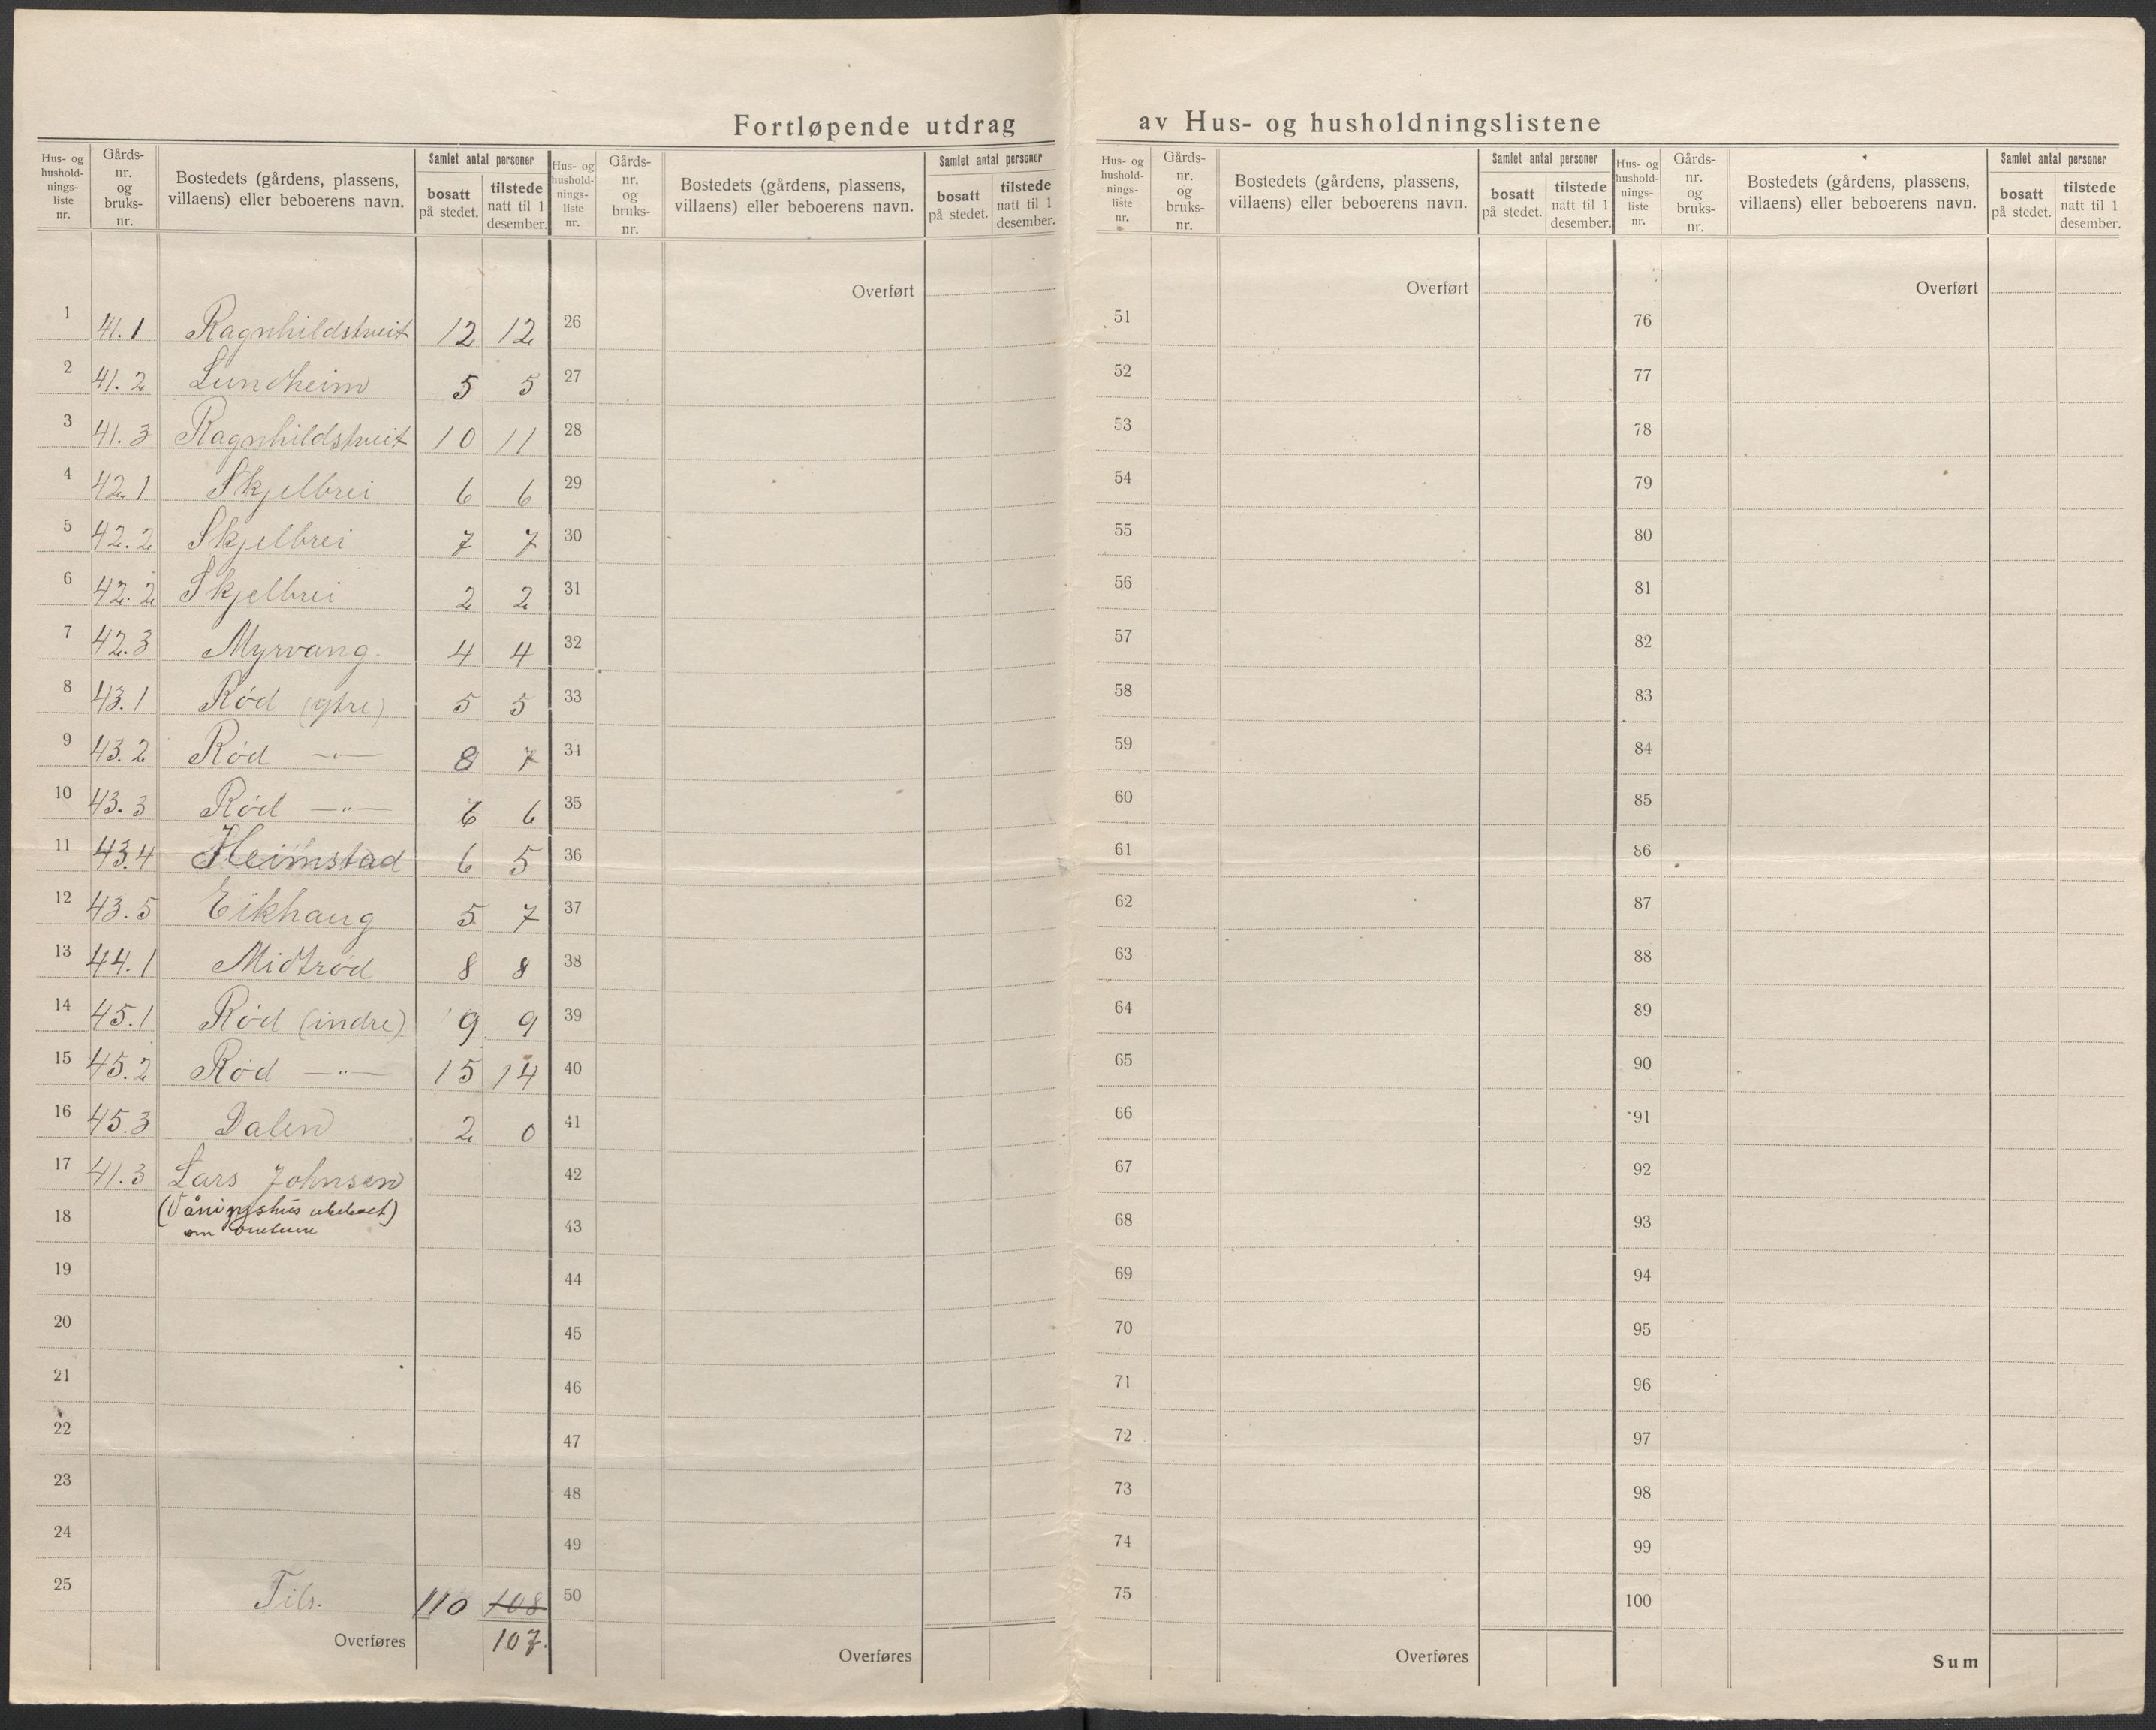 Fortløpende utdrag av Hus- og husholdningslistene
Hus- og hushold-nings-liste nr.
Gårds-nr. og bruks-nr.
Bostedets (gårdens, plassens, villaens) eller beboerens navn.
Samlet antal personer
bosatt på stedet.
tilstede natt til 1 desember.
Hus- og hushold-nings-liste nr.
Gårds-nr. og bruks-nr.
Bostedets (gårdens, plassens, villaens) eller beboerens navn.
Samlet antal personer
bosatt på stedet.
tilstede natt til 1 desember.
Hus- og hushold-nings-liste nr.
Gårds-nr. og bruks-nr.
Bostedets (gårdens, plassens, villaens) eller beboerens navn.
Samlet antal personer
bosatt på stedet.
tilstede natt til 1 desember.
Hus- og hushold-nings-liste nr.
Gårds-nr. og bruks-nr.
Bostedets (gårdens, plassens, villaens) eller beboerens navn.
Samlet antal personer
bosatt på stedet.
tilstede natt til 1 desember.
1 41.1 Ragnhildstveit 12 12
2 41.2 Lundheim 5 5
3 41.3 Ragnhildstveit 10 11
4 42.1 Skjelbrei 6 6
5 42.2 Skjelbrei 7 7
6 42.2 Skjelbrei 2 2
7 42.3 Myrvang. 4 4
8 43.1 Rød (ytre) 5 5
9 43.2 Rød —"— 8 7
10 43.3 Rød —"— 6 6
11 43.4 Heimstad 6 5
12 43.5 Eikhaug 5 7
13 44.1 Midtrød 8 8
14 45.1 Rød (indre) 9 9
15 45.2 Rød —"— 15 14
16 45.3 Dalen 2 0
17 41.3 Lars Johnsen
(Våningshus ubeboet)
18 om
19
20
21
22
23
24
25 Tils. 110 108
Overføres 107.
Overført
26
27
28
29
30
31
32
33
34
35
36
37
38
39
40
41
42
43
44
45
46
47
48
49
50
Overføres
Overført
51
52
53
54
55
56
57
58
59
60
61
62
63
64
65
66
67
68
69
70
71
72
73
74
75
Overføres
Overført
76
77
78
79
80
81
82
83
84
85
86
87
88
89
90
91
92
93
94
95
96
97
98
99
100
Sum